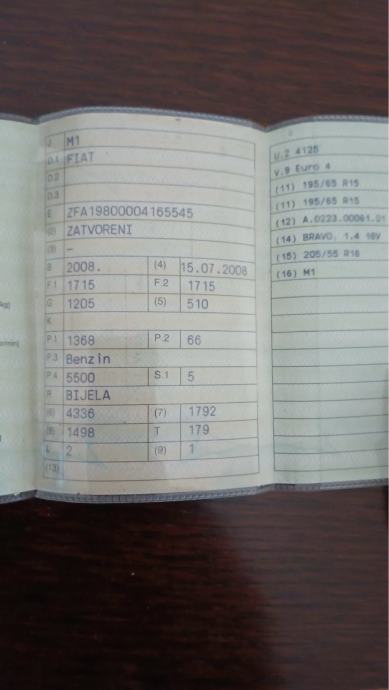 J M1
D.1 FIAT
D.2
D.3
E ZFA19800004165545
(2) ZATVORENI
(3) –
B 2008. (4) 15.07.2008
F.1 1715 F.2 1715
G 1205 (5) 510
K
P.1 1368 P.2 66
P.3 Benzin
P.4 5500 S.1 5
R BIJELA
(6) 4336 (7) 1792
(8) 1498 T 179
L 2 (9) 1
(13)
U.2 4125
V.9 Euro 4
(11) 195/65 R15
(11) 195/65 R15
(12) A.0223.00061.01
(14) BRAVO, 1.4 16V
(15) 205/55 R16
(16) M1